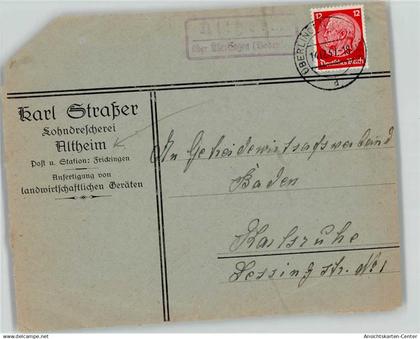 über Überlingen (Bodensee)
12 12
Deutsches Reich
ÜBERLINGEN
Karl Straßer
Lohndrescherei
Altheim
Post u. Station: Frickingen
Anfertigung von
landwirtschaftlichen Geräten
An Getreidewirtschaftsverband
Baden
Karlsruhe
Lessing str. No 1
www.ansichtskarten-center.de
Ansichtskarten-Center